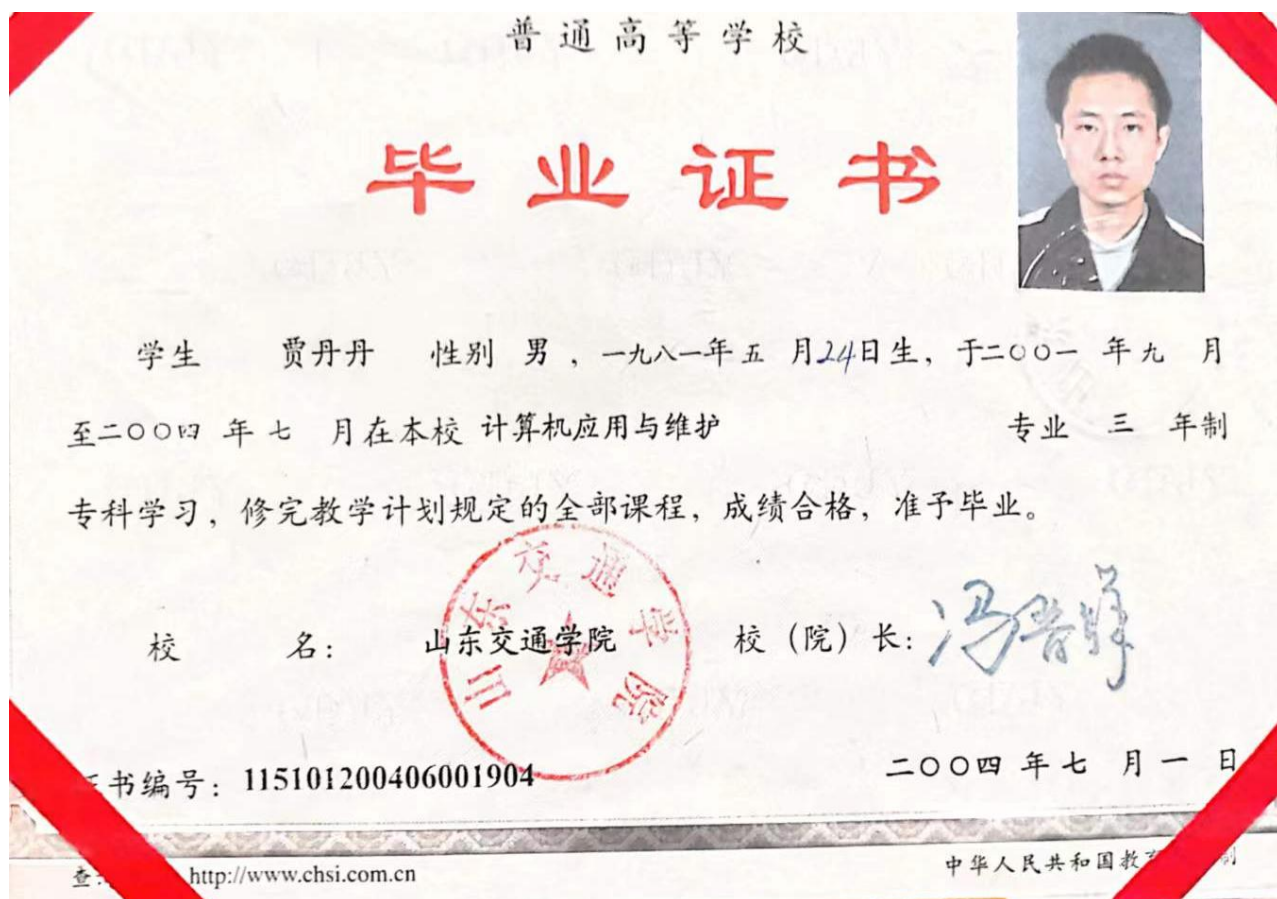 普通高等学校
毕业证书
学生 贾丹丹 性别 男 , 一九八一年五 月24日生, 于二〇〇一 年九 月
至二〇〇四 年七 月在本校 计算机应用与维护 专业 三 年制
专科学习, 修完教学计划规定的全部课程, 成绩合格, 准予毕业。
山东交通学院
校 名: 山东交通学院 校(院)长: 冯晋祥
书编号: 115101200406001904 二〇〇四 年七 月一 日
查 http://www.chsi.com.cn 中华人民共和国教 制